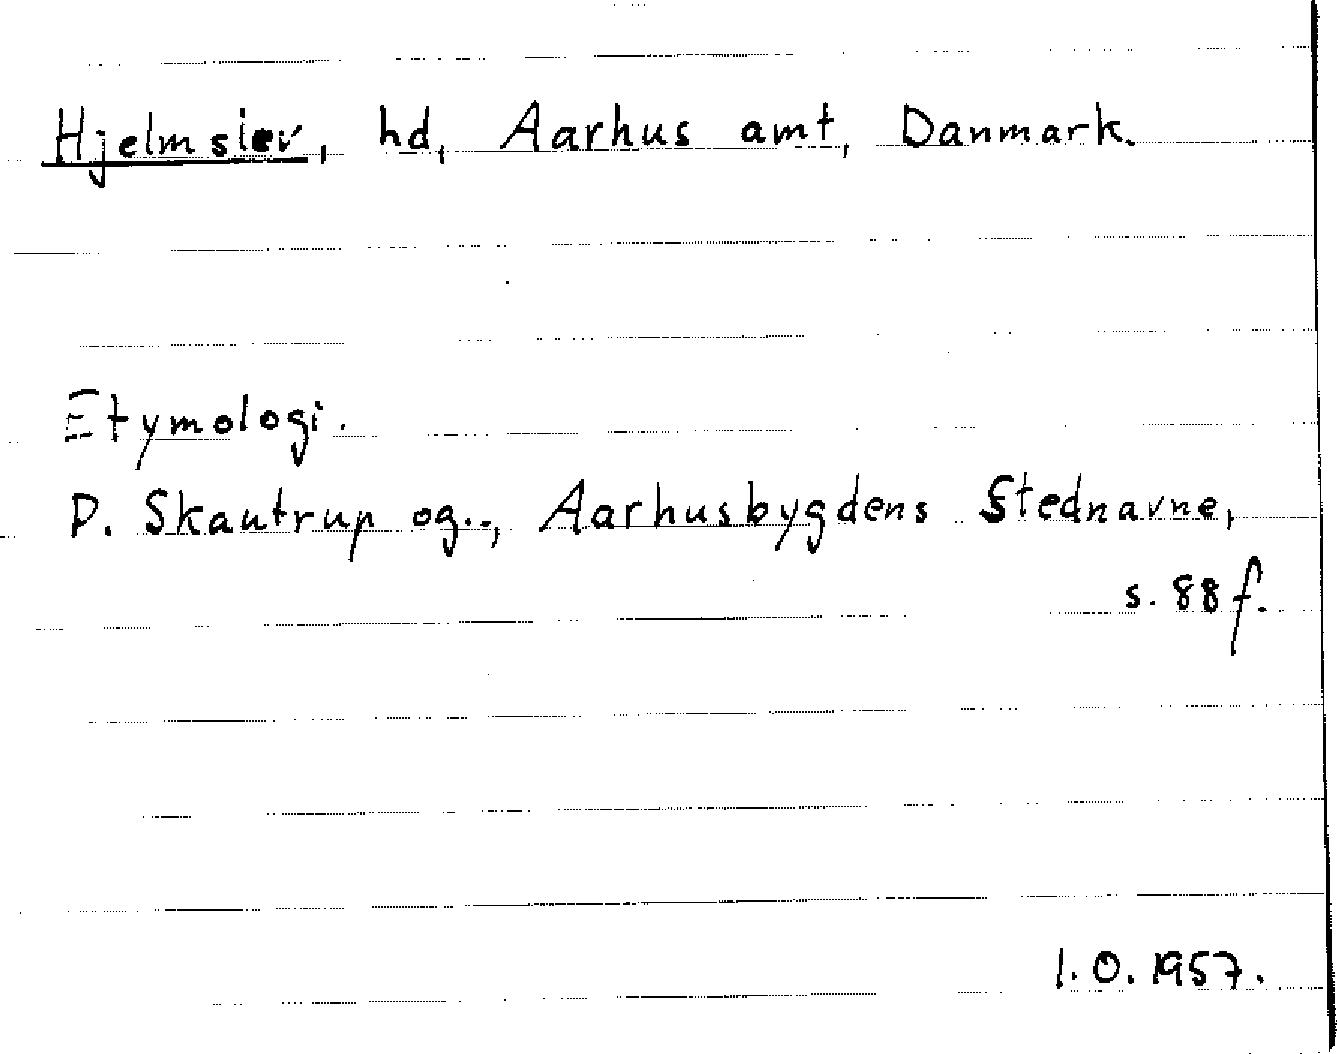 Hjelmslev, hd, Aarhus amt, Danmark.
Etymologi.
P. Skautrup og.., Aarhusbygdens Stednavne,
s. 88 f.
I. O. 1957.